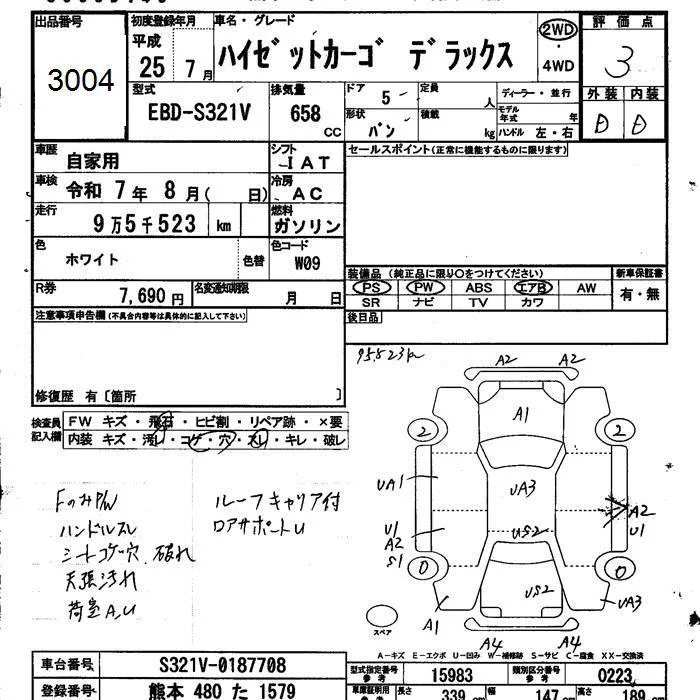 出品番号
3004
初度登録年月
平成
25年 7月
車名・グレード
ハイゼットカーゴ デラックス
2WD
・
4WD
評価点
3
外装 内装
D D
型式
EBD-S321V
排気量
658
CC
ドア
5
定員
人
ディーラー・並行
モデル年式 年
形状
バン
積載
kg
ハンドル 左・右
車歴
自家用
シフト
IAT
セールスポイント(正常に機能するものに限ります)
車検
令和 7年 8月( 日)
冷房
AC
走行
9万5千523 km
燃料
ガソリン
色
ホワイト
色替
色コード
W09
装備品 (純正品に限り○をつけてください)
新車保証書
PS PW ABS エアB AW
SR ナビ TV カワ
有・無
R券
7,690円
名変通知期限
月 日
後日品
注意事項申告欄(不具合内容等は具体的に記入して下さい)
修復歴 有〔箇所 〕
検査員記入欄
FW キズ・飛石・ヒビ割・リペア跡・×要
内装 キズ・汚レ・コゲ・穴・スレ・キレ・破レ
95,523km
A2 A2
A1
2 2
UA1
UA3
A2
U1
U1
A2
S1
US2
0 0
US2
A1
UA3
A4 A4
スペア
FのみP/W
ハンドルスレ
シートコゲ穴 破れ
天張汚れ
荷室A,U
ルーフキャリア付
ロアサポートU
A−キズ E−エクボ U−凹み W−補修跡 S−サビ C−腐食 XX−交換済
車台番号
S321V-0187708
型式指定番号
参考
15983
類別区分番号
参考
0223
登録番号
熊本 480 た 1579
車庫証明用
長さ
339 cm
幅
147 cm
高さ
189 cm